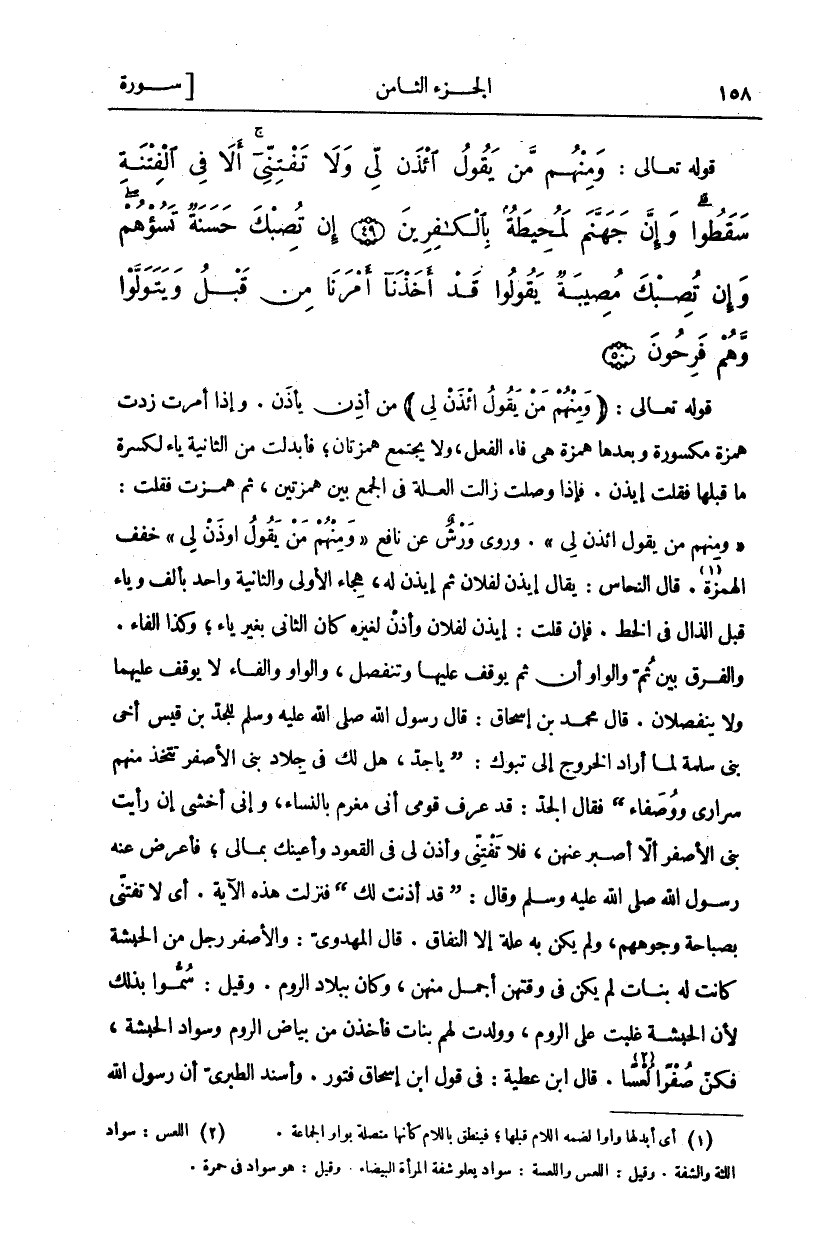 ١٥٨ الجزء الثامن [سورة
قوله تعالى : وَمِنْهُم مَّن يَقُولُ ٱئْذَن لِّى وَلَا تَفْتِنِّىٓ ۚ أَلَا فِى ٱلْفِتْنَةِ
سَقَطُوا۟ ۗ وَإِنَّ جَهَنَّمَ لَمُحِيطَةٌۢ بِٱلْكَـٰفِرِينَ ﴿٤٩﴾ إِن تُصِبْكَ حَسَنَةٌ تَسُؤْهُمْ ۖ
وَإِن تُصِبْكَ مُصِيبَةٌ يَقُولُوا۟ قَدْ أَخَذْنَآ أَمْرَنَا مِن قَبْلُ وَيَتَوَلَّوا۟
وَّهُمْ فَرِحُونَ ﴿٥٠﴾
قوله تعالى : ﴿وَمِنْهُمْ مَنْ يَقُولُ ائْذَنْ لِى﴾ من أذِن يأذَن . وإذا أمرت زدت
همزة مكسورة وبعدها همزة هى فاء الفعل، ولا يجتمع همزتان؛ فأبدلت من الثانية ياء لكسرة
ما قبلها فقلت إيذن . فإذا وصلت زالت العلة فى الجمع بين همزتين ، ثم همزت فقلت :
« ومِنهم من يقول ائذن لِى » . وروى وَرْشٌ عن نافع « وَمِنْهُمْ مَنْ يَقُولُ اوذَنْ لِى » خفف
الهمزة (١) . قال النحاس : يقال إيذن لفلان ثم إيذن له، هجاء الأولى والثانية واحد بألف وياء
قبل الذال فى الخط . فإن قلت : إيذن لفلان وأذنْ لغيره كان الثانى بغير ياء ؛ وكذا الفاء .
والفرق بين ثُمّ والواو أن ثم يوقف عليها وتنفصل ، والواو والفاء لا يوقف عليهما
ولا ينفصلان . قال محمد بن إسحاق : قال رسول الله صلى الله عليه وسلم للجدّ بن قيس أخى
بنى سلمة لما أراد الخروج إلى تبوك : ” ياجدّ ، هل لك فى جِلاد بنى الأصفر تتّخذ منهم
سرارى ووُصَفاء “ فقال الجدّ : قد عرف قومى أنى مغرم بالنساء، وإنى أخشى إن رأيت
بنى الأصفر ألّا أصبر عنهن ، فلا تَفْتِنّى وأذن لى فى القعود وأعينك بمالى ؛ فأعرض عنه
رسول الله صلى الله عليه وسلم وقال : ” قد أذنت لك “ فنزلت هذه الآية . أى لا تفتنّى
بصباحة وجوههم، ولم يكن به علة إلا النفاق . قال المهدوىّ : والأصفر رجل من الحبشة
كانت له بنات لم يكن فى وقتهن أجمل منهن ، وكان ببلاد الروم . وقيل : سُمُّوا بذلك
لأن الحبشة غلبت على الروم ، وولدت لهم بنات فأخذن من بياض الروم وسواد الحبشة ،
فكنّ صُفْرًا لُعْسًا (٢) . قال ابن عطية : فى قول ابن إسحاق فتور . وأسند الطبرىّ أن رسول الله
(١) أى أبدلها واوا لضمه اللام قبلها ؛ فينطق باللام كأنها متصلة بواو الجماعة . (٢) اللعس : سواد
اللثة والشفة . وقيل : اللعس واللعسة : سواد يعلو شفة المرأة البيضاء . وقيل : هو سواد فى حمرة .